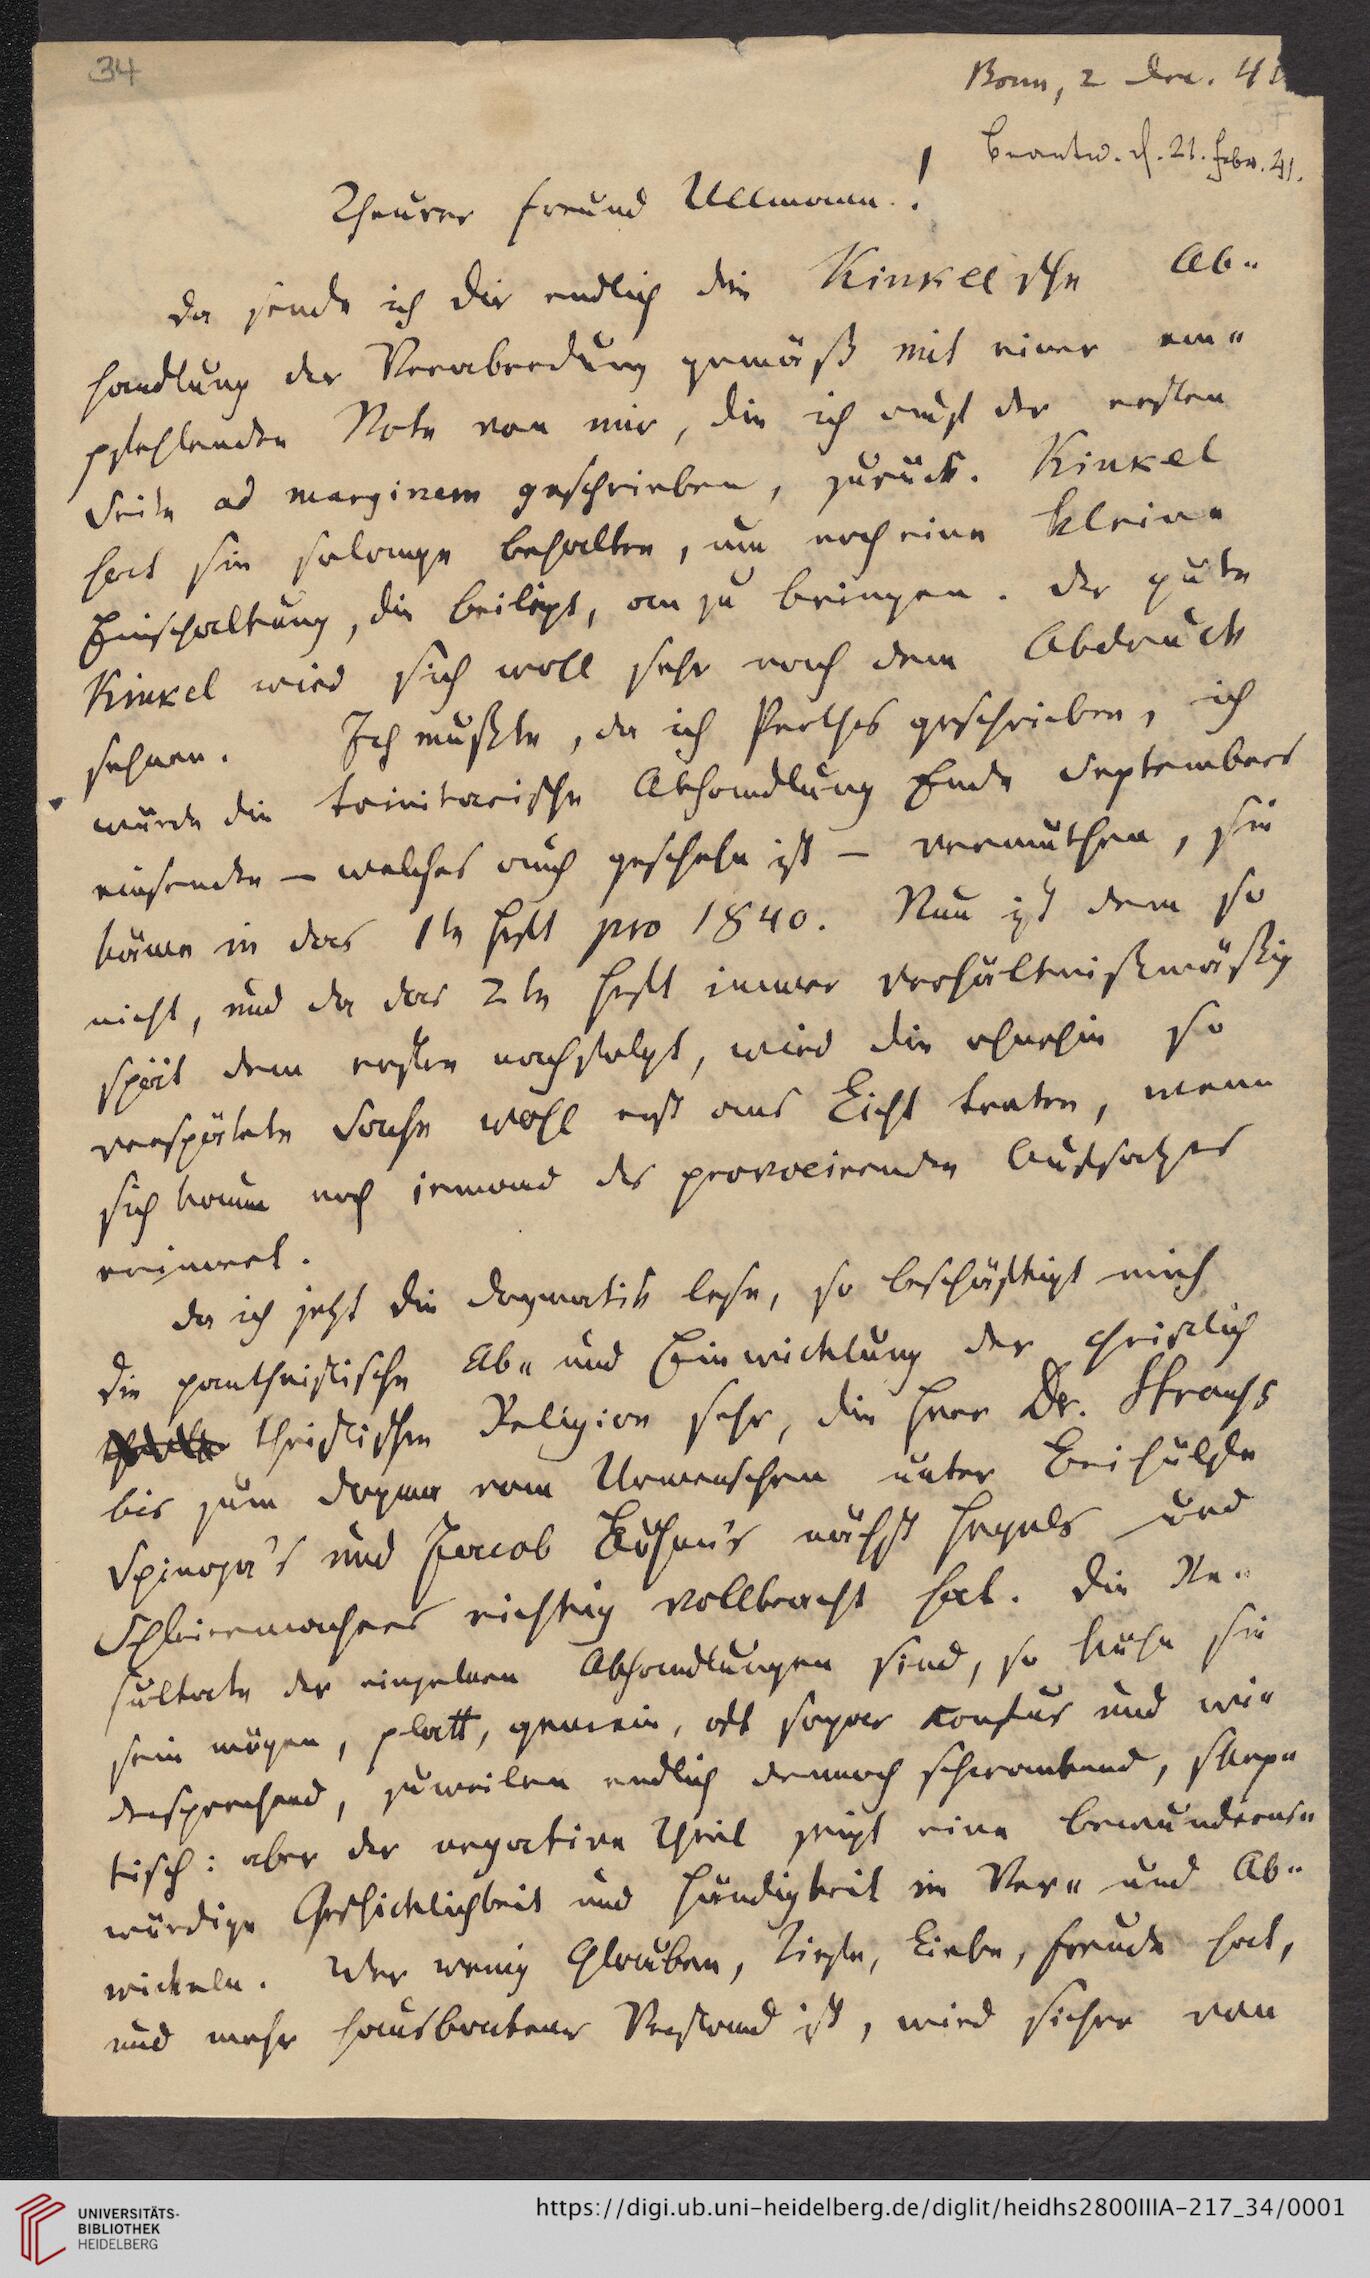 34
Bonn, 2 Dec. 41
Beantw. d. 21. Febr. 41.
Theurer Freund Ullmann!
Da sende ich Dir endlich die Kinkelsche Ab-
handlung der Verabredung gemäß mit einer em-
pfehlenden Note von mir, die ich auf der ersten
Seite ad marginem geschrieben, zurück. Kinkel
hat sie solange behalten, um noch eine kleine
Einschaltung, die beiligt, an zu bringen. Der gute
Kinkel wird sich woll sehr nach dem Abdruck
sehnen. Ich mußte, da ich Perthes geschrieben, ich
würde die trinitarische Abhandlung Ende Septembers
einsenden – welches auch geschehn ist – vermuthen, sie
käme in das 1te Heft pro 1840. Nun ist dem so
nicht, und da das 2te Heft immer verhältnißmäßig
spät dem ersten nachfolgt, wird die ohnehin so
verspätete Sache wohl erst ans Licht treten, wenn
sich kaum noch jemand des provocirenden Aufsatzes
erinnert.
Da ich jetzt die Dogmatik lese, so beschäftigt mich
die pantheistische Ab- und Einwicklung der christlich
theistischen Religion sehr, die Herr Dr. Strauss
bis zum Dogma vom Urmenschen unter Beihülfe
Spinoza's und Jacob Böhme's nächst Hegels und
Schleiermachers richtig vollbracht hat. Die Re-
sultate der einzelnen Abhandlungen sind, so kühn sie
sein mögen, platt, gemein, oft sogar confus und wi-
dersprechend, zuweilen endlich dennoch schwankend, skep-
tisch: aber der negative Theil zeigt eine bewunderns-
würdige Geschicklichkeit und Händigkeit im Ver- und Ab-
wickeln. Wer wenig Glauben, Tiefe, Liebe, Freude hat,
und mehr hausbackener Verstand ist, wird sicher von
UNIVERSITÄTS-
BIBLIOTHEK
HEIDELBERG
https://digi.ub.uni-heidelberg.de/diglit/heidhs2800IIIA-217_34/0001